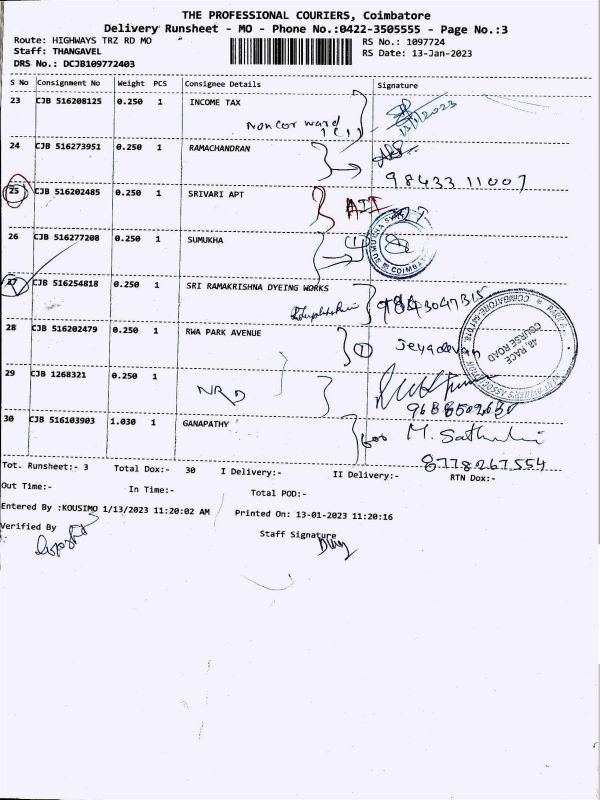 THE PROFESSIONAL COURIERS, Coimbatore
Delivery Runsheet - MO - Phone No.:0422-3505555 - Page No.:3
Route: HIGHWAYS TRZ RD MO
RS No.: 1097724
Staff: THANGAVEL
RS Date: 13-Jan-2023
DRS No.: DCJB109772403
S No Consignment No Weight PCS Consignee Details Signature
23 CJB 516208125 0.250 1 INCOME TAX
Non cor ward
24 CJB 516273951 0.250 1 RAMACHANDRAN
98433 11007
25 CJB 516202485 0.250 1 SRIVARI APT
26 CJB 516277208 0.250 1 SUMUKHA
27 CJB 516254818 0.250 1 SRI RAMAKRISHNA DYEING WORKS
9843047315
28 CJB 516202479 0.250 1 RWA PARK AVENUE
1 Jeyadevan
48, RACE
COURSE ROAD
29 CJB 1268321 0.250 1
NRD
30 CJB 516103903 1.030 1 GANAPATHY
600 M.
8778267554
Tot. Runsheet:- 3 Total Dox:- 30 I Delivery:- II Delivery:- RTN Dox:-
Out Time:- In Time:- Total POD:-
Entered By :KOUSIMO 1/13/2023 11:20:02 AM Printed On: 13-01-2023 11:20:16
Verified By Staff Signature